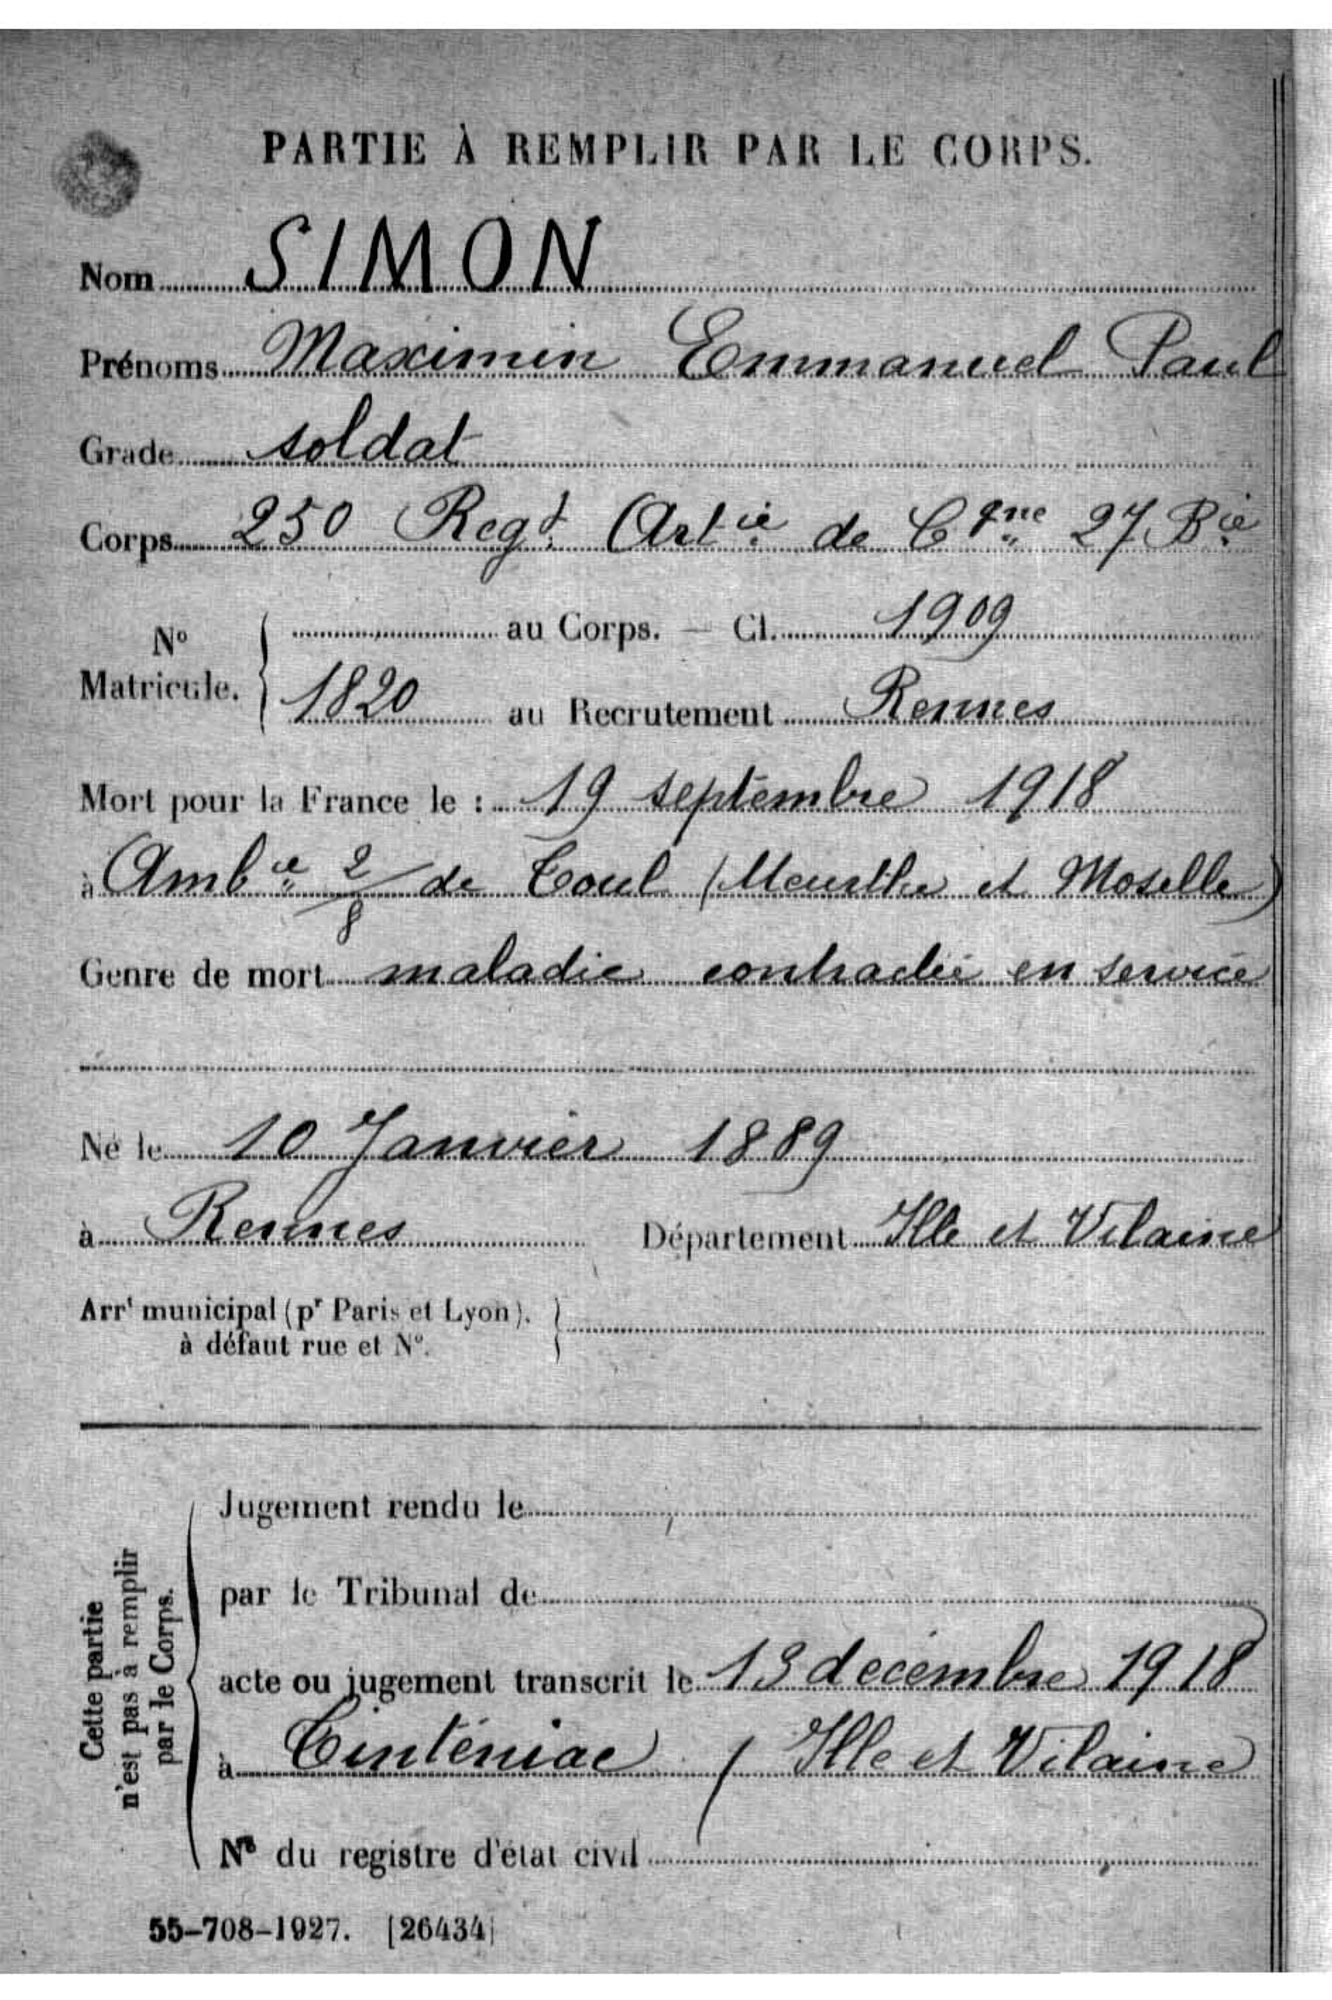 PARTIE À REMPLIR PAR LE CORPS.
Nom SIMON
Prénoms Maximin Emmanuel Paul
Grade soldat
Corps 250 Regt. Artie de Cgne 27 Bie
N° Matricule. au Corps. – Cl. 1909
1820 au Recrutement Rennes
Mort pour la France le : 19 septembre 1918
à Ambce 2/8 de Toul (Meurthe et Moselle)
Genre de mort maladie contractée en service
Né le 10 Janvier 1889
à Rennes Département Ille et Vilaine
Arrt municipal (pr Paris et Lyon),
à défaut rue et N°.
Cette partie
n'est pas à remplir
par le Corps.
Jugement rendu le
par le Tribunal de
acte ou jugement transcrit le 13 décembre 1918
à Tinténiac (Ille et Vilaine)
N° du registre d'état civil
55-708-1927. [26434]